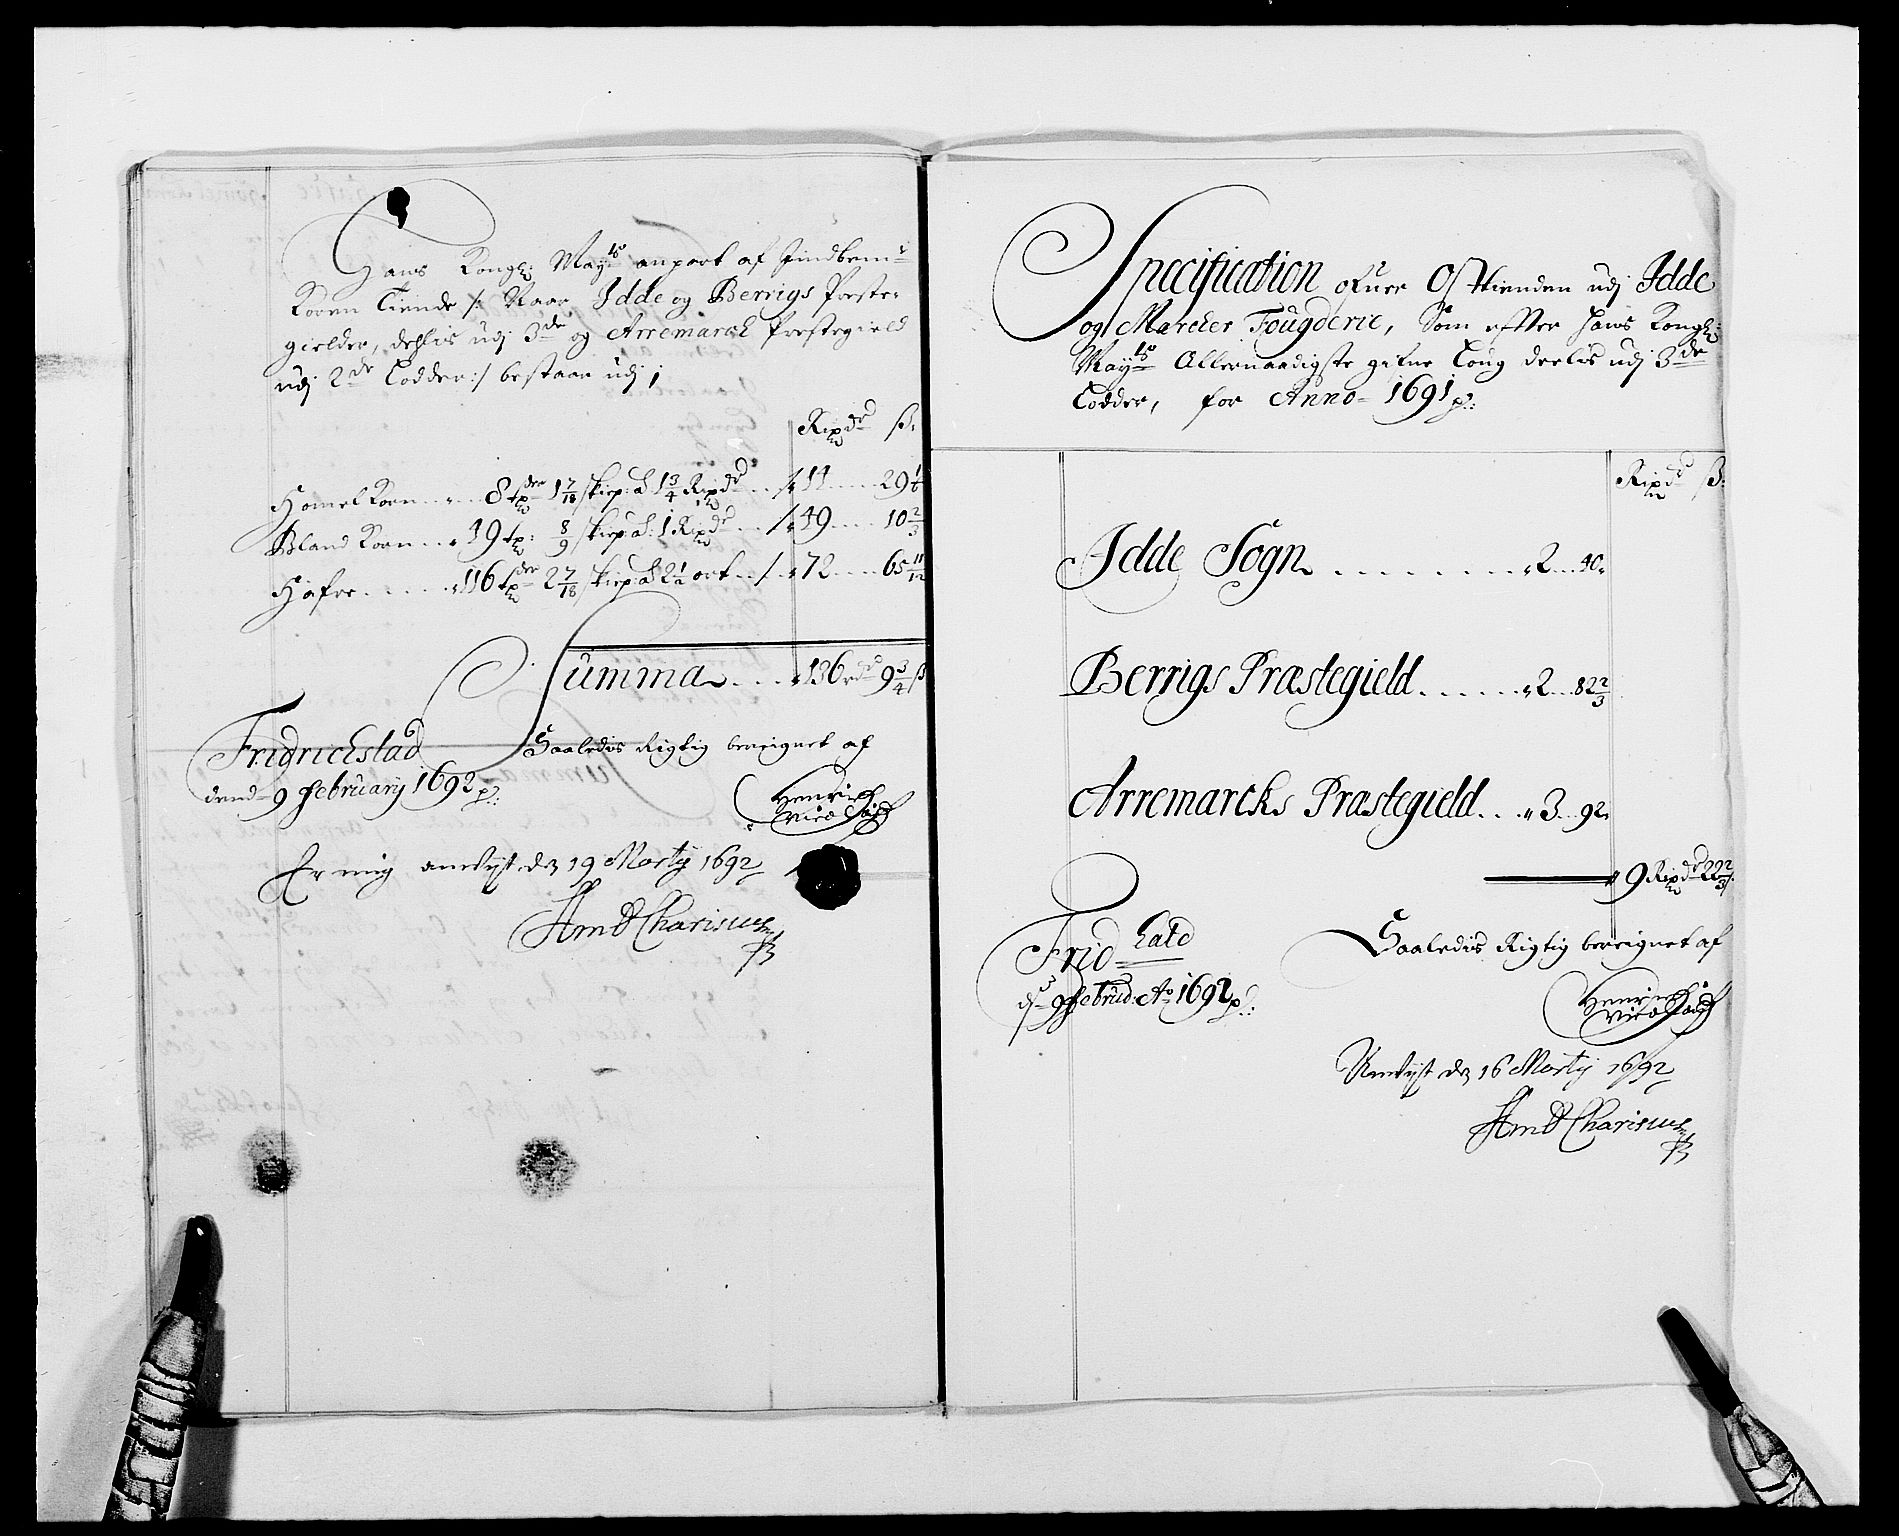 Hans Kongl: Mayts anpart af Findbem:te
Koren Tiende /: Naar Idde og Berrigs Preste-
gielder, dehlis udj 3de og Arremarck Prestegield
udj 2de Lodder:/ bestaar udj;
Rixdr ß:
Homel Korn .... 8 tndr 1 7/18 skiep: à 1 3/4 Rixdr .. / 14 .... 29 1/6
Bland Korn .. 49 tn: 8/9 skiep: à: 1 Rixdr .. / 49 .... 10 2/3
Hafre ..... 116 tndr 2 7/18 skiep: à 2 1/2 ort .. / 72 .... 65 11/12
Summa .... 136 rdr 9 3/4 ß
Fridrichstad
dend 9 February 1692 p:
Saaledis Rigtig bereignet af
Henrich
Er mig anvist den 19 Marty 1692
Amd Charisius
Specification ofuer Ostetienden udj Idde
og Marcker Fougderie, Som efter Hans Kongl:
Mayts Allernaadigste gifne Loug deelis udj 3de
Lodder, for Anno 1691 p:
Rixdr ß:
Idde Sogn ........ 2 ... 40
Berrigs Præstegield ...... 2 ... 82 2/3
Arremarcks Præstegield ... 3 ... 92
9 Rixdr 22 2/3
Frid Hald
d: 9 Februa: Ao 1692 p:
Saaledis Rigtig bereignet af
Henrich
Anvist den 16 Marty 1692
Amd Charisius